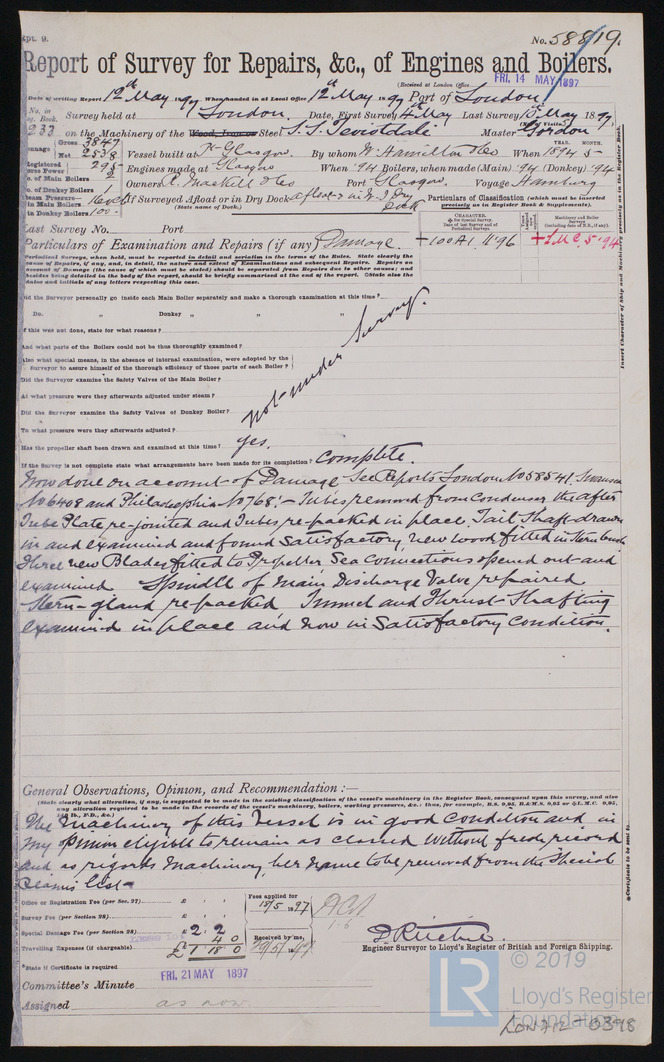 pt. 9.
No. 58819.
Report of Survey for Repairs, &c., of Engines and Boilers.
(Received at London Office
FRI. 14 MAY 1897
Date of writing Report 12th May 1897 When handed in at Local Office 12th May 1897 Port of London
No. in Reg. Book. Survey held at London. Date, First Survey 4th May Last Survey 10 May 1897
233 on the Machinery of the Wood, Iron or Steel S.S. Teviotdale Master Gordon
Gross 3847
Net 2538
Vessel built at Pt Glasgow. By whom W. Hamilton & Co When 1894 5
YEAR. MONTH.
Registered Horse Power 295
Engines made at Glasgow When '94 Boilers, when made (Main) '94 (Donkey) '94
No. of Main Boilers 2
Owners J. Maskill & Co Port Glasgow. Voyage Hamburg
No. of Donkey Boilers 1
Steam Pressure—
in Main Boilers 160
in Donkey Boilers 100
If Surveyed Afloat or in Dry Dock afloat & in Dry Dock
(State name of Dock.)
Particulars of Classification (which must be inserted precisely as in Register Book & Supplements).
Last Survey No. Port
CHARACTER.
Machinery and Boiler Surveys
(including date of N.B., if any).
Particulars of Examination and Repairs (if any) Damage.
+100A1 11.96
+LMC. 5.94
Periodical Surveys, when held, must be reported in detail and seriatim in the terms of the Rules. State clearly the
cause of Repairs, if any, and, in detail, the nature and extent of Examinations and subsequent Repairs. Repairs on
account of Damage (the cause of which must be stated) should be separated from Repairs due to other causes; and
besides being detailed in the body of the report, should be briefly summarised at the end of the report. State also the
dates and initials of any letters respecting this case.
Did the Surveyor personally go inside each Main Boiler separately and make a thorough examination at this time?
Do. " Donkey " " "
If this was not done, state for what reasons?
And what parts of the Boilers could not be thus thoroughly examined?
Also what special means, in the absence of internal examination, were adopted by the
Surveyor to assure himself of the thorough efficiency of those parts of each Boiler?
Did the Surveyor examine the Safety Valves of the Main Boiler?
At what pressure were they afterwards adjusted under steam?
Did the Surveyor examine the Safety Valves of Donkey Boiler?
To what pressure were they afterwards adjusted?
not under Survey.
Has the propeller shaft been drawn and examined at this time? yes.
If the Survey is not complete state what arrangements have been made for its completion? Complete.
Now done on account of Damage See Reports London No 58541. Swansea
No 6408 and Philadelphia No 768:— Tubes removed from Condenser the after
Tube Plate re-jointed and Tubes re-packed in place. Tail Shaft drawn
in and examined and found Satisfactory, new wood fitted in Stern bush
Three new Blades fitted to Propeller Sea Connections opened out and
examined Spindle of Main Discharge Valve repaired
Stern-gland repacked Tunnel and Thrust Shafting
examined in place and now in Satisfactory Condition.
Insert Character of Ship and Machinery precisely as in the Register Book.
General Observations, Opinion, and Recommendation:—
(State clearly what alteration, if any, is suggested to be made in the existing classification of the vessel's machinery in the Register Book, consequent upon this survey, and also
any alteration required to be made in the records of the vessel's machinery, boilers, working pressures, &c.: thus, for example, B.S. 9,95, B.&M.S. 9,95 or L.M.C. 9,95,
lb., F.D., &c.)
The Machinery of this Vessel is in good Condition and in
my Opinion eligible to remain as classed without fresh record
and as regards Machinery, her name to be removed from the Special
Reasons list—
Certificate to be sent to
Office or Registration Fee (per Sec. 27) £
Survey Fee (per Section 28) £
Special Damage Fee (per Section 28) £2 2
Travelling Expenses (if chargeable) 4 0
£1 18 0
Fees applied for
18/5 1897
Received by me,
D. Ritchie.
Engineer Surveyor to Lloyd's Register of British and Foreign Shipping.
State if Certificate is required
FRI. 21 MAY 1897
Committee's Minute
Assigned as now
© 2019
LR
Lloyd's Register
Foundation
LON712-0398